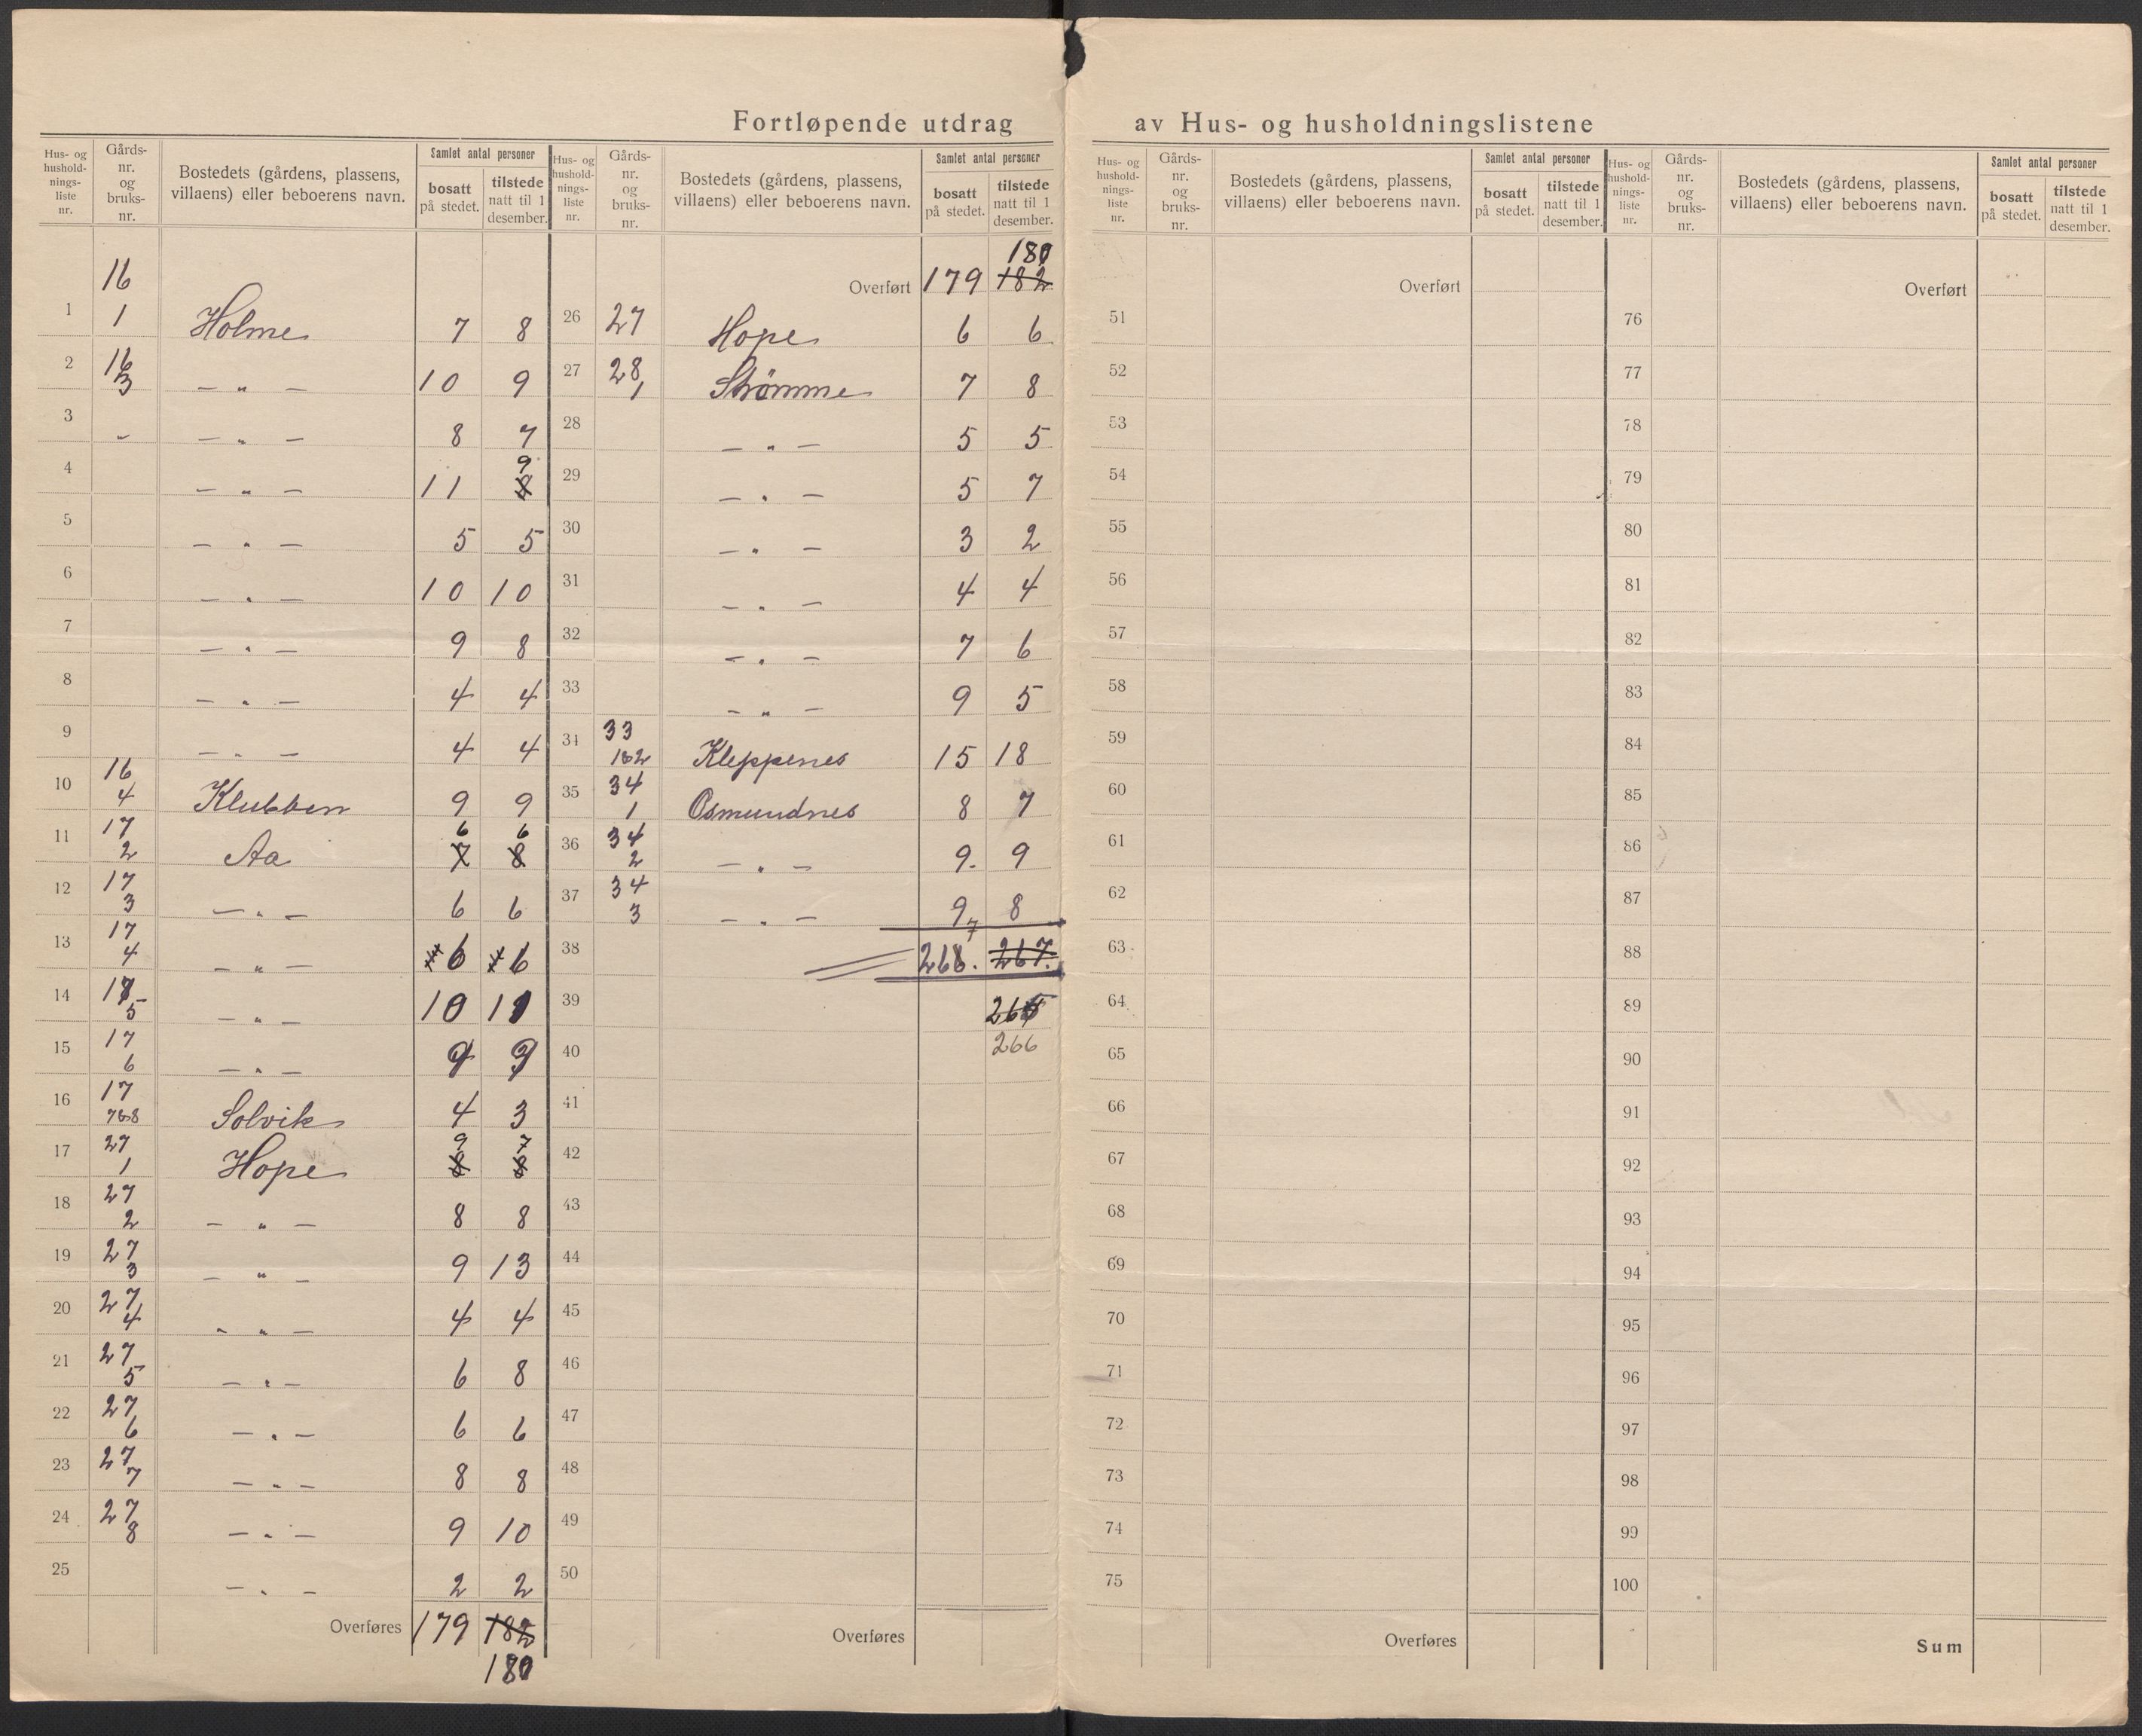 Fortløpende utdrag av Hus- og husholdningslistene
Hus- og hushold-nings-liste nr. Gårds-nr. og bruks-nr. Bostedets (gårdens, plassens, villaens) eller beboerens navn. Samlet antal personer bosatt på stedet. tilstede natt til 1 desember.
1 16 1 Holme 7 8
2 16 3 — " — 10 9
3 " — " — 8 7
4 — " — 11 9 8
5 — " — 5 5
6 — " — 10 10
7 — " — 9 8
8 — " — 4 4
9 — " — 4 4
10 16 4 Klubben 9 9
11 17 2 Aa 6 7 6 8
12 17 3 — " — 6 6
13 17 4 — " — 6 6
14 17 5 — " — 10
15 17 6 — " —
16 17 7&8 Solvik 4 3
17 27 1 Hope 9 8 7 8
18 27 2 — " — 8 8
19 27 3 — " — 9 13
20 27 4 — " — 4 4
21 27 5 — " — 6 8
22 27 6 — " — 6 6
23 27 7 — " — 8 8
24 27 8 — " — 9 10
25 — " — 2 2
Overføres 179 182
180
Hus- og hushold-nings-liste nr. Gårds-nr. og bruks-nr. Bostedets (gårdens, plassens, villaens) eller beboerens navn. Samlet antal personer bosatt på stedet. tilstede natt til 1 desember.
180
Overført 179 182
26 27 Hope 6 6
27 28 1 Strömme 7 8
28 — " — 5 5
29 — " — 5 7
30 — " — 3 2
31 — " — 4 4
32 — " — 7 6
33 — " — 9 5
34 33 1&2 Kleppenes 15 18
35 34 1 Osmundnes 8 7
36 34 2 — " — 9. 9
37 34 3 — " — 9 8
38 268. 267.
39 265
40 266
41
42
43
44
45
46
47
48
49
50
Overføres
Hus- og hushold-nings-liste nr. Gårds-nr. og bruks-nr. Bostedets (gårdens, plassens, villaens) eller beboerens navn. Samlet antal personer bosatt på stedet. tilstede natt til 1 desember.
Overført
51
52
53
54
55
56
57
58
59
60
61
62
63
64
65
66
67
68
69
70
71
72
73
74
75
Overføres
Hus- og hushold-nings-liste nr. Gårds-nr. og bruks-nr. Bostedets (gårdens, plassens, villaens) eller beboerens navn. Samlet antal personer bosatt på stedet. tilstede natt til 1 desember.
Overført
76
77
78
79
80
81
82
83
84
85
86
87
88
89
90
91
92
93
94
95
96
97
98
99
100
Sum